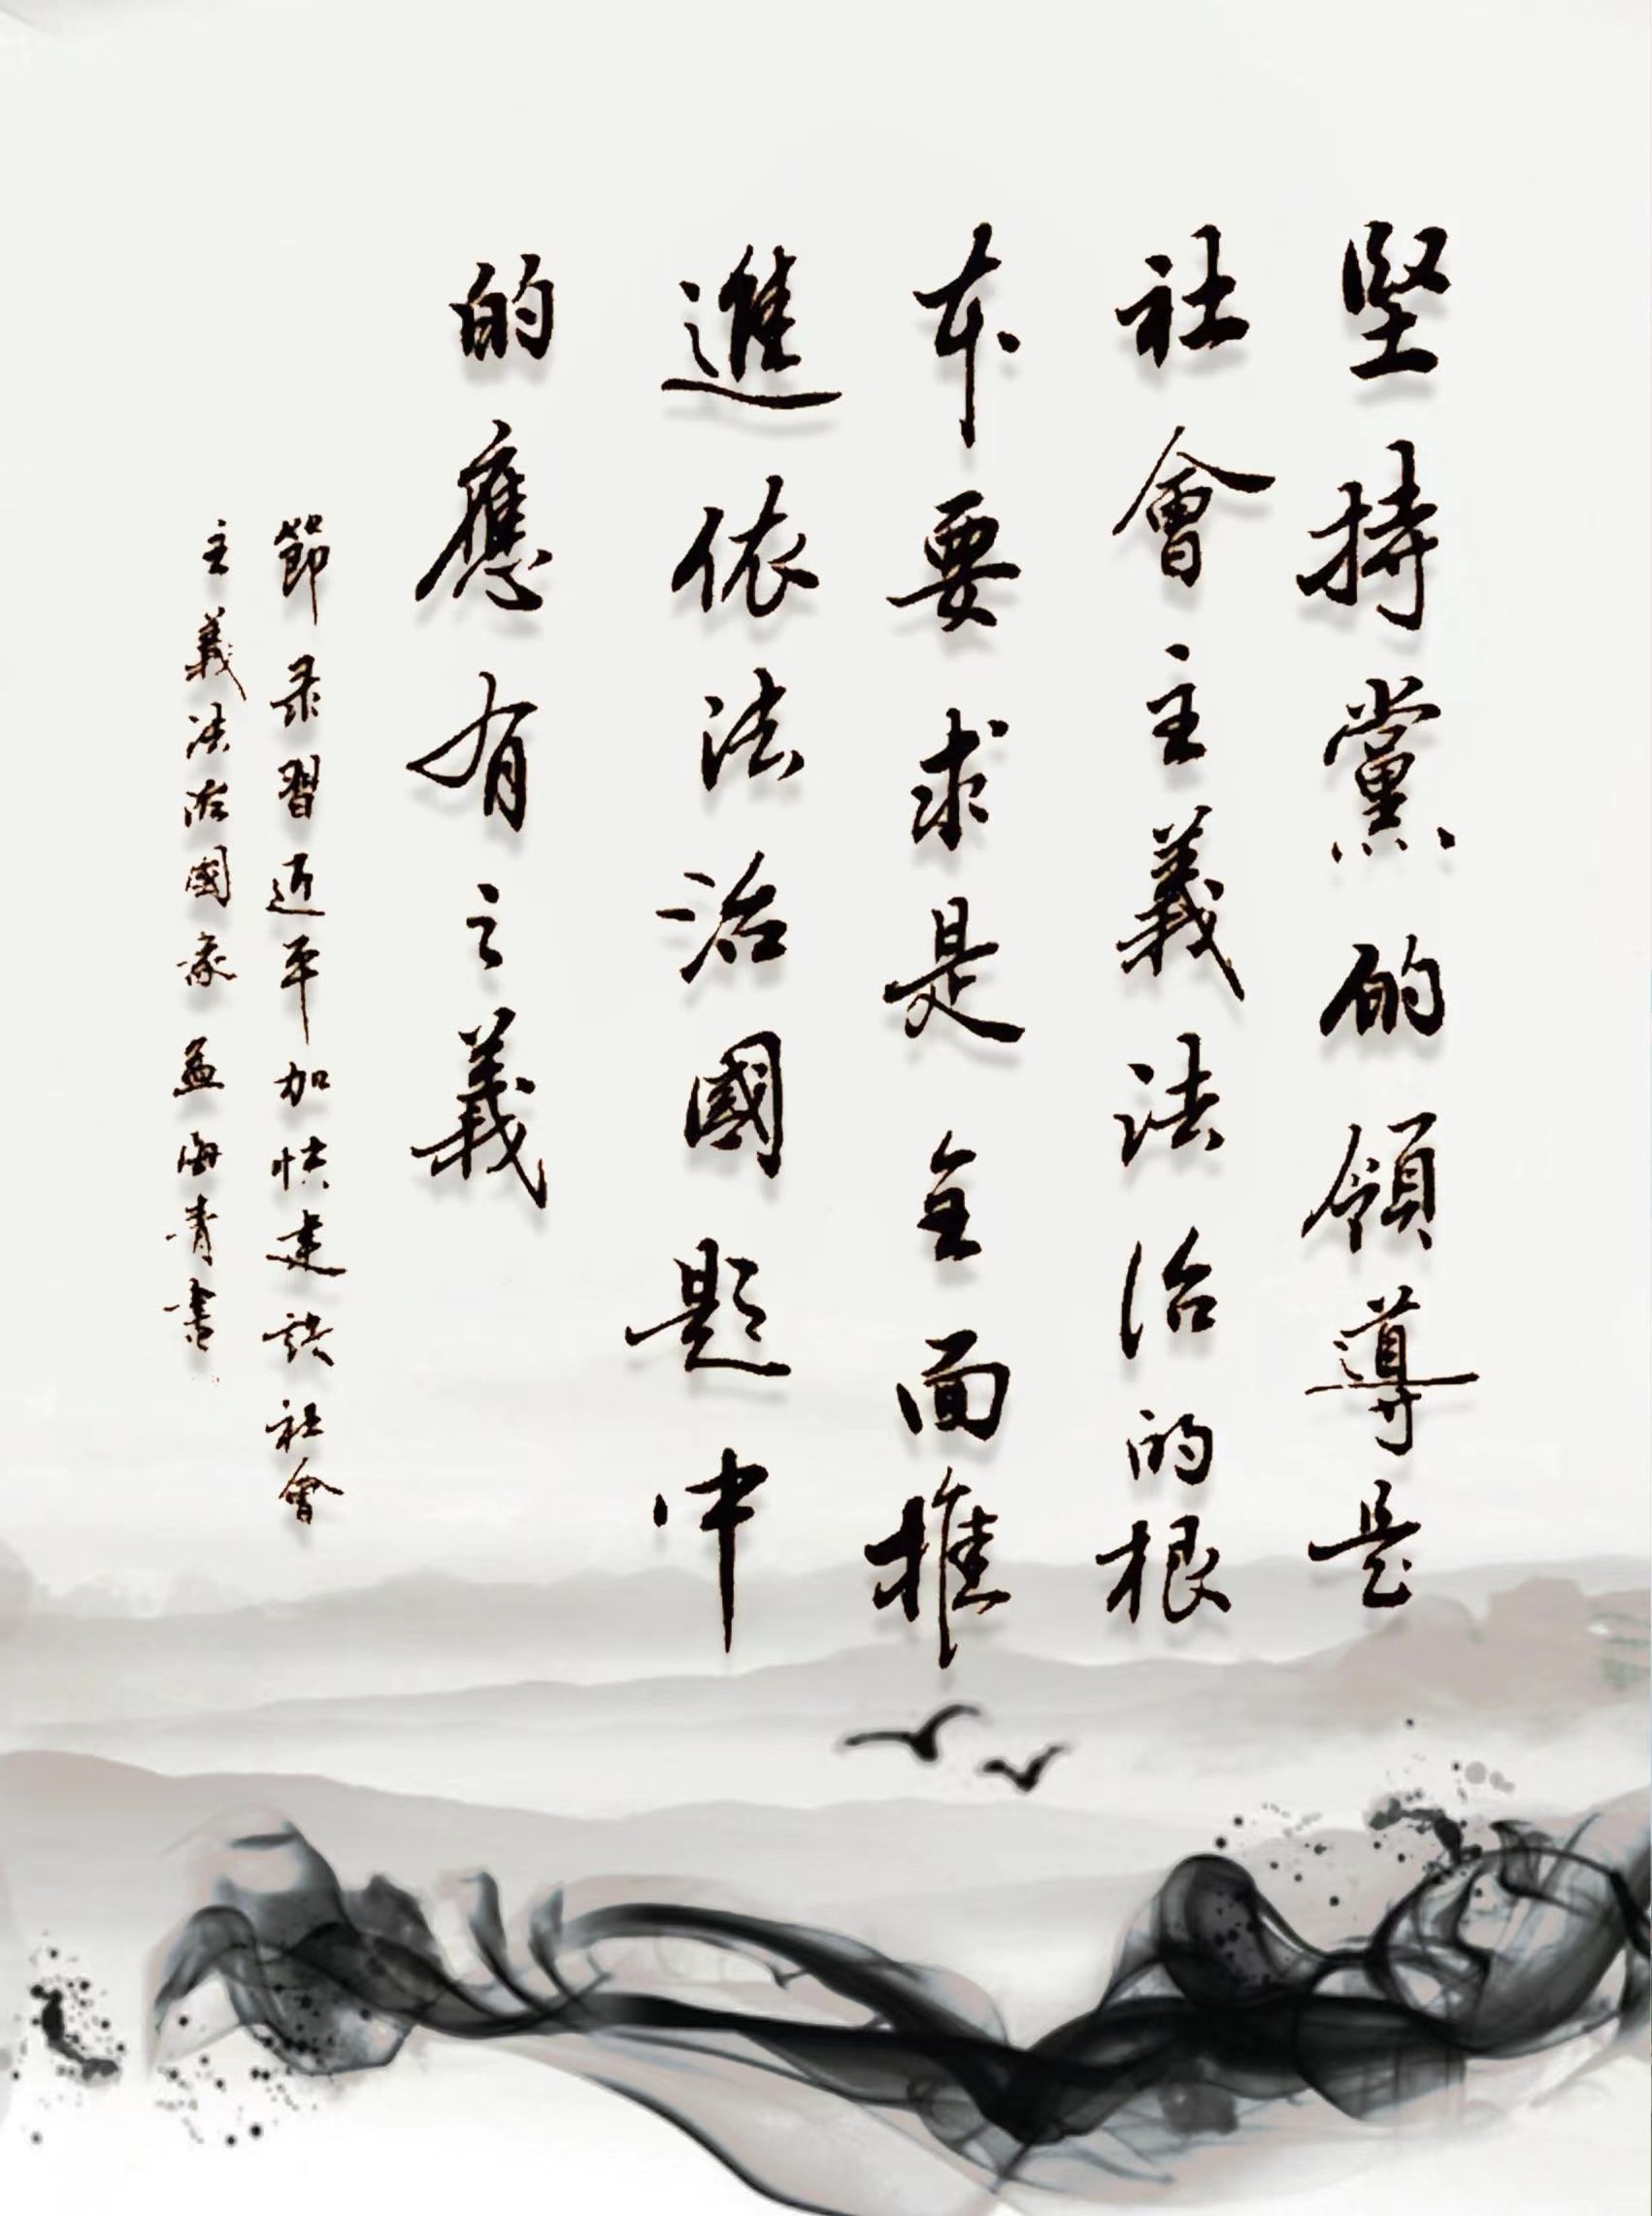 堅持黨的領導是
社會主義法治的根
本要求是全面推
進依法治國題中
的應有之義
節录習近平加快建设社會
主義法治國家 孟海青書